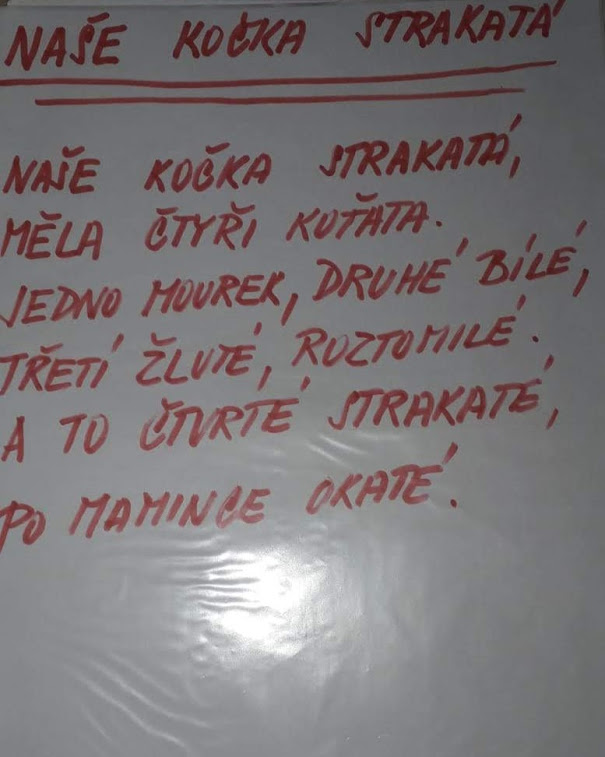 NAŠE KOČKA STRAKATÁ
NAŠE KOČKA STRAKATÁ,
MĚLA ČTYŘI KOŤATA.
JEDNO MOUREK, DRUHÉ BÍLÉ,
TŘETÍ ŽLUTÉ, ROZTOMILÉ.
A TO ČTVRTÉ STRAKATÉ,
PO MAMINCE OKATÉ.